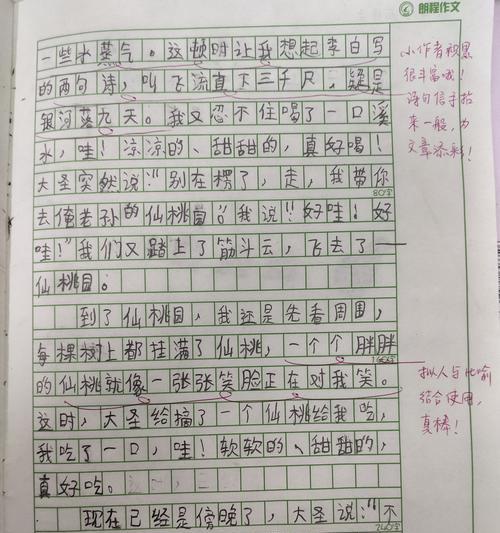 朗程作文
一些水蒸气。这顿时让我想起李白写
的两句诗，叫飞流直下三千尺，疑是
银河落九天。我又忍不住喝了一口溪
水，哇！凉凉的、甜甜的，真好喝！
大圣突然说：“别在楞了，走，我带你
80字
去俺老孙的仙桃园。”我说：“好哇！好
哇！”我们又踏上了筋斗云，飞去了
仙桃园。
到了仙桃园，我还是先看周围，
每棵树上都挂满了仙桃，一个个胖胖
的仙桃就像一张张笑脸正在对我笑。
这时，大圣给摘了一个仙桃给我吃，
我吃了一口，哇！软软的、甜甜的，
真好吃。
现在已经是傍晚了，大圣说：“不
240字
小作者积累
很丰富哦！
诗句信手拈
来一般，为
文章添彩！
拟人与比喻
结合使用，
真棒！